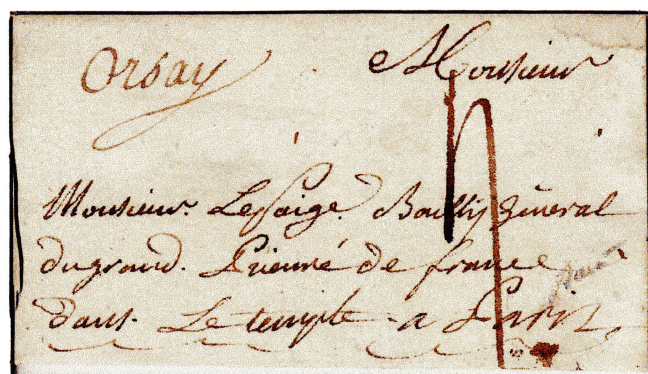 Orsay Monsieur
Monsieur Lepaige Bailly general
du grand Prieuré de france
dans Le temple a Paris